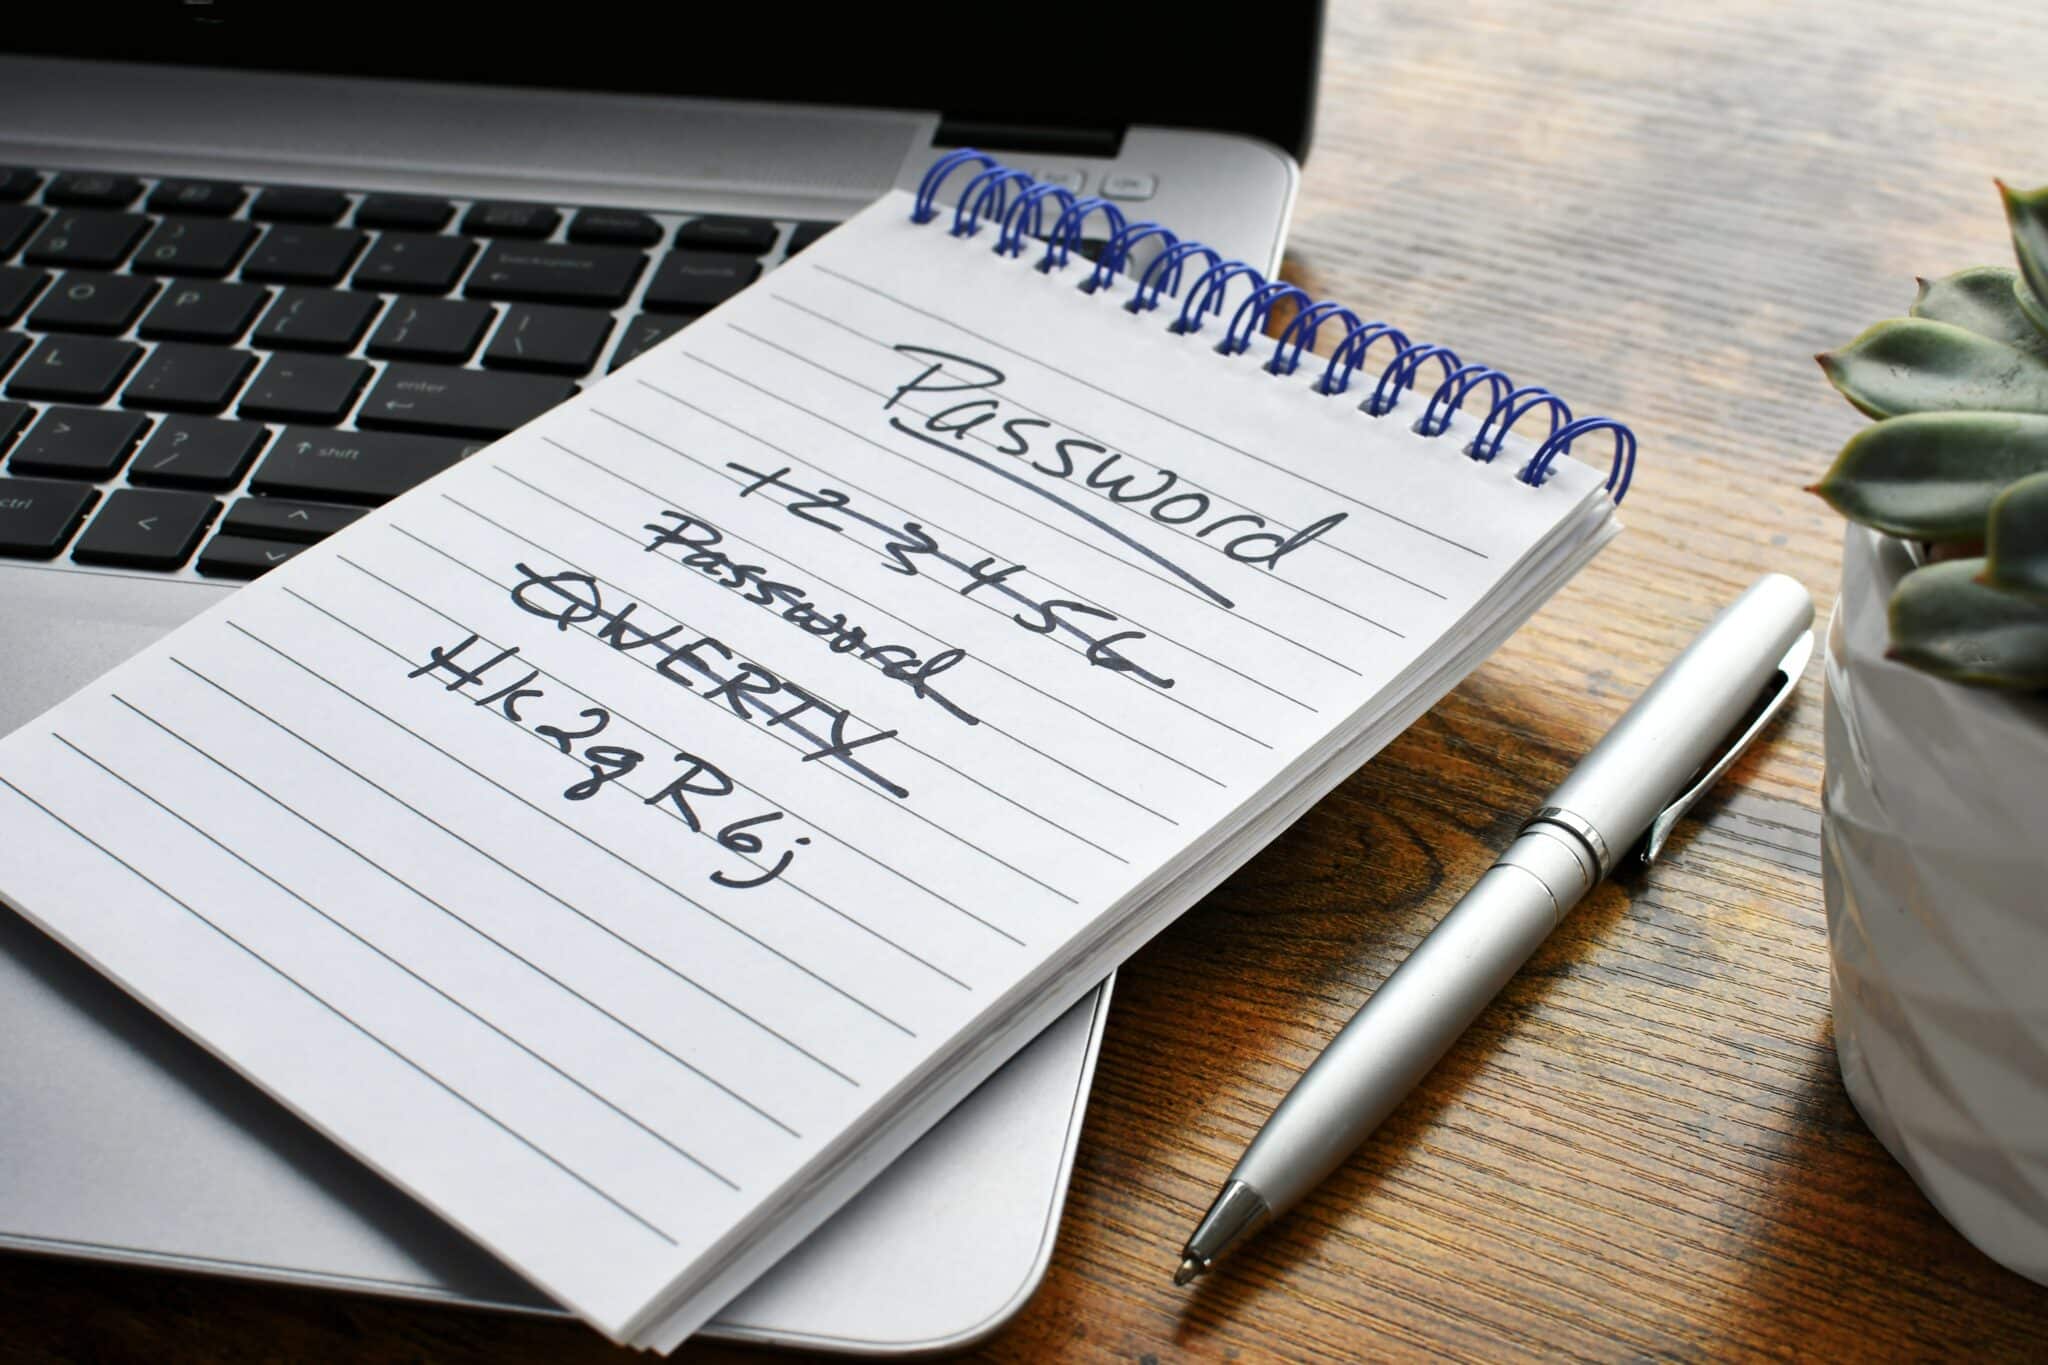 Password
123456
Password
QWERTY
HK2qR6j
backspace
O P
L
enter
shift
ctrl